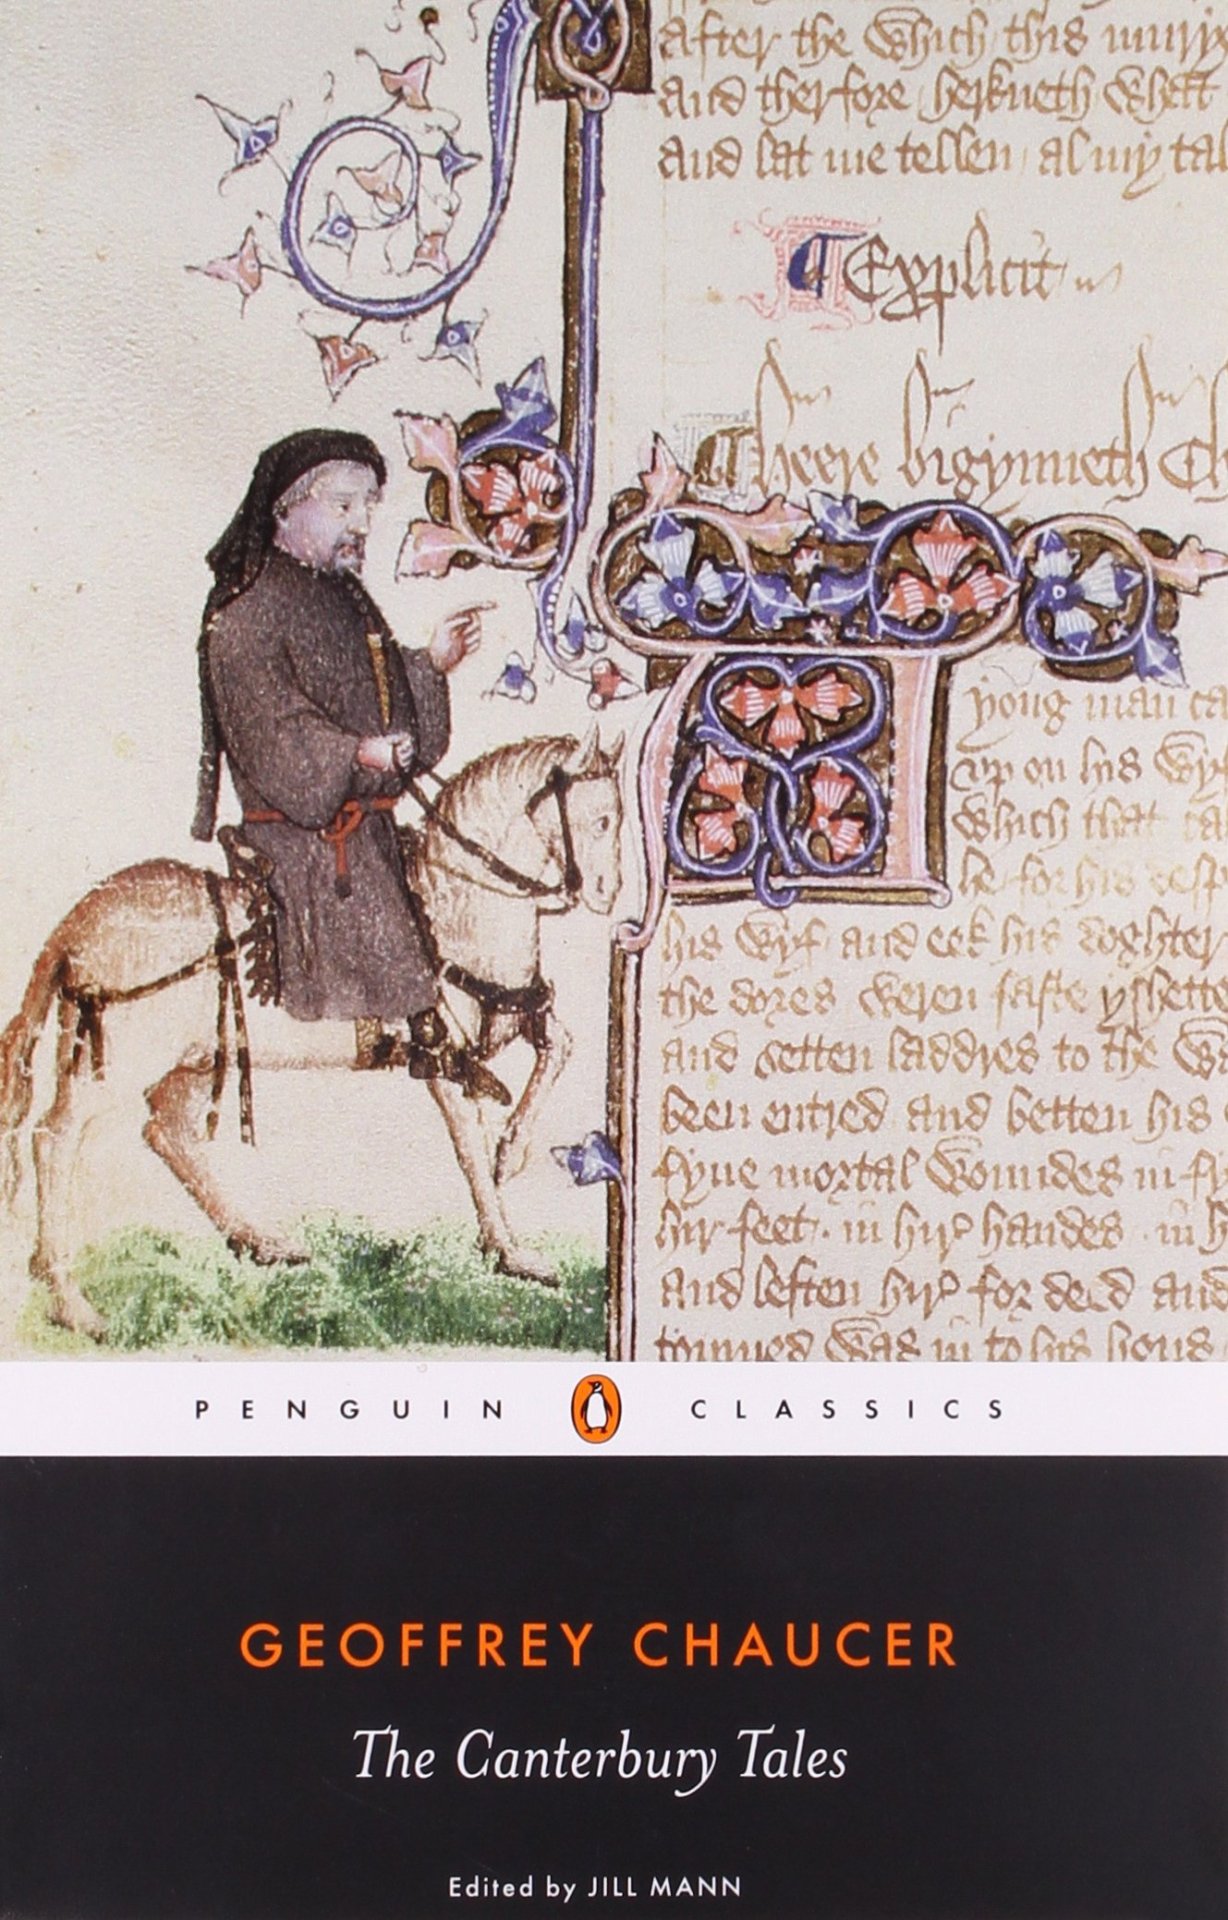 after the which this murye
and therfore herkneth what
and lat me tellen al my tal
Explicit
Heere bigynneth Ch
yong man ca
vp on his
which that ca
he for his desp
his wyf and eek his doghter
the dores weren faste yshette
and setten laddres to the
been entred and betten his
fyue mortal woundes in
hir feet in hir handes in h
and leften hir for deed and
was in to his hous
PENGUIN CLASSICS
GEOFFREY CHAUCER
The Canterbury Tales
Edited by JILL MANN